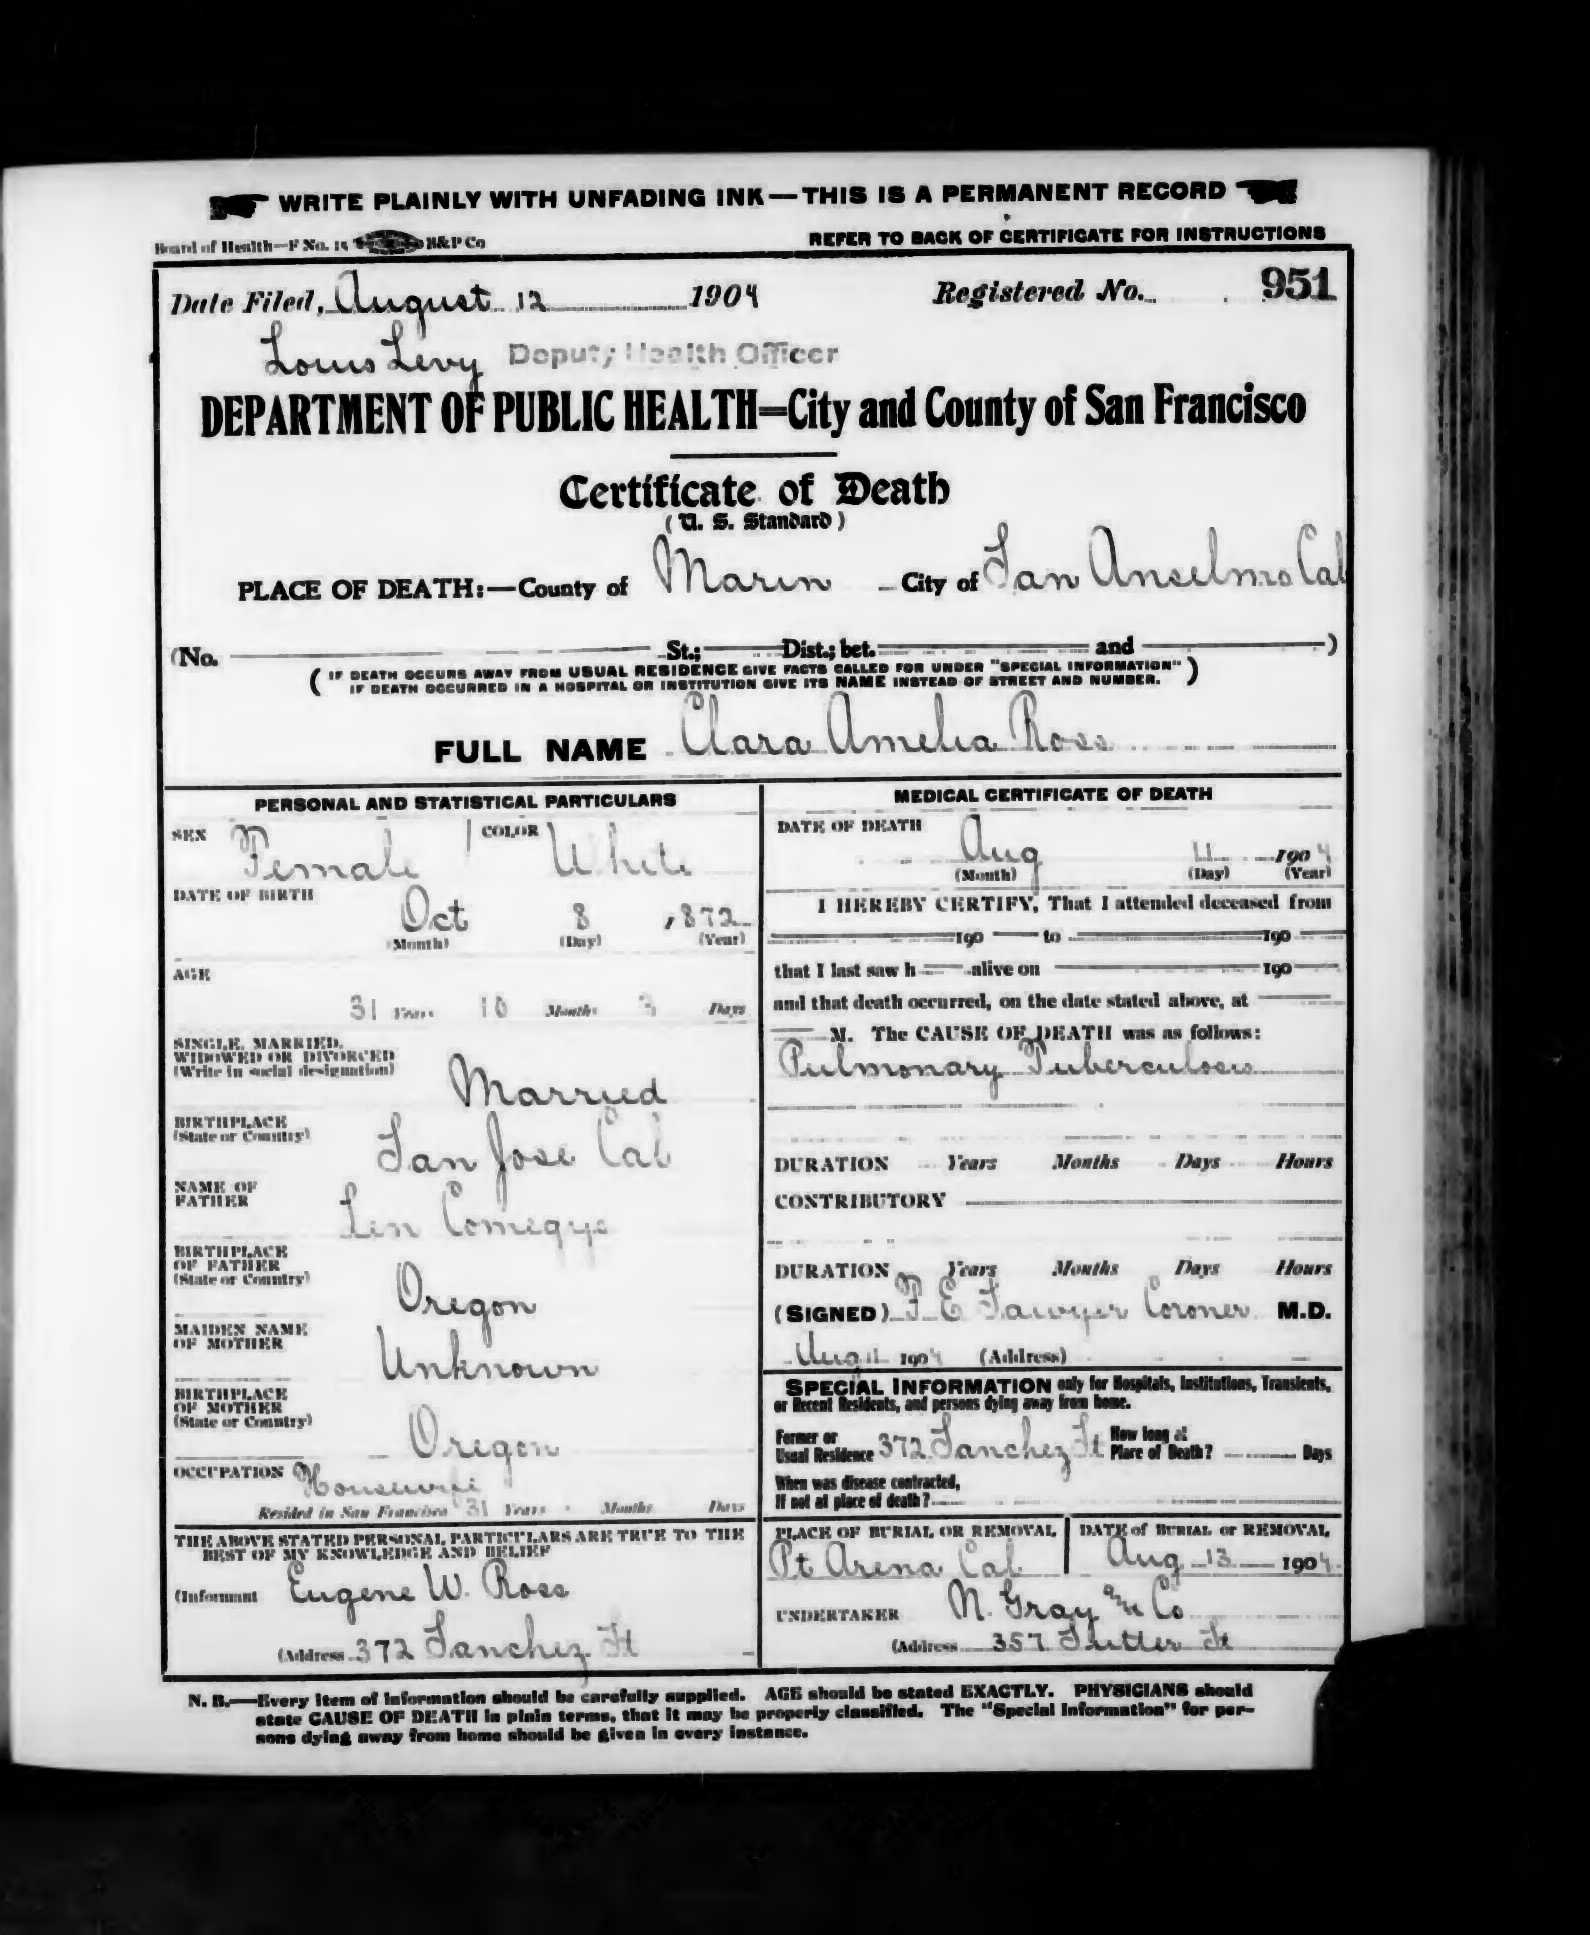 WRITE PLAINLY WITH UNFADING INK—THIS IS A PERMANENT RECORD
Board of Health—F No. 15 H&P Co
REFER TO BACK OF CERTIFICATE FOR INSTRUCTIONS
Date Filed, August 12 1904 Registered No. 951
Louis Levy Deputy Health Officer
DEPARTMENT OF PUBLIC HEALTH=City and County of San Francisco
Certificate of Death
(U. S. Standard)
PLACE OF DEATH:—County of Marin City of San Anselmo Cal
(No. St.; Dist.; bet. and )
( IF DEATH OCCURS AWAY FROM USUAL RESIDENCE GIVE FACTS CALLED FOR UNDER "SPECIAL INFORMATION"
IF DEATH OCCURRED IN A HOSPITAL OR INSTITUTION GIVE ITS NAME INSTEAD OF STREET AND NUMBER. )
FULL NAME Clara Amelia Ross
PERSONAL AND STATISTICAL PARTICULARS
SEX Female COLOR White
DATE OF BIRTH
Oct 8 1872
(Month) (Day) (Year)
AGE
31 Years 10 Months 3 Days
SINGLE, MARRIED,
WIDOWED OR DIVORCED
(Write in social designation)
Married
BIRTHPLACE
(State or Country)
San Jose Cal
NAME OF
FATHER
Len Comegys
BIRTHPLACE
OF FATHER
(State or Country)
Oregon
MAIDEN NAME
OF MOTHER
Unknown
BIRTHPLACE
OF MOTHER
(State or Country)
Oregon
OCCUPATION Housewife
Resided in San Francisco 31 Years Months Days
THE ABOVE STATED PERSONAL PARTICULARS ARE TRUE TO THE
BEST OF MY KNOWLEDGE AND BELIEF
(Informant Eugene W. Ross
(Address 372 Sanchez St
MEDICAL CERTIFICATE OF DEATH
DATE OF DEATH
Aug 11 1904
(Month) (Day) (Year)
I HEREBY CERTIFY, That I attended deceased from
190 to 190
that I last saw h alive on 190
and that death occurred, on the date stated above, at
M. The CAUSE OF DEATH was as follows:
Pulmonary Tuberculosis
DURATION Years Months Days Hours
CONTRIBUTORY
DURATION Years Months Days Hours
(SIGNED) F E Sawyer Coroner M.D.
Aug 11 1904 (Address)
SPECIAL INFORMATION only for Hospitals, Institutions, Transients,
or Recent Residents, and persons dying away from home.
Former or
Usual Residence 372 Sanchez St How long at
Place of Death? Days
When was disease contracted,
If not at place of death?
PLACE OF BURIAL OR REMOVAL
Pt Arena Cal
DATE of BURIAL or REMOVAL
Aug 13 1904
UNDERTAKER N. Gray & Co
(Address 357 Sutter St
N. B.—Every item of information should be carefully supplied. AGE should be stated EXACTLY. PHYSICIANS should
state CAUSE OF DEATH in plain terms, that it may be properly classified. The "Special Information" for per-
sons dying away from home should be given in every instance.